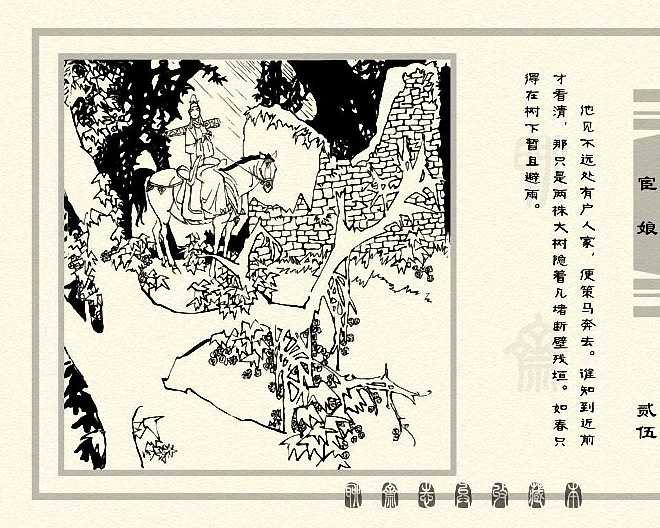 他见不远处有户人家，便策马奔去。谁知到近前
才看清，那只是两株大树隐着几堵断壁残垣。如春只
得在树下暂且避雨。
宦娘
贰伍